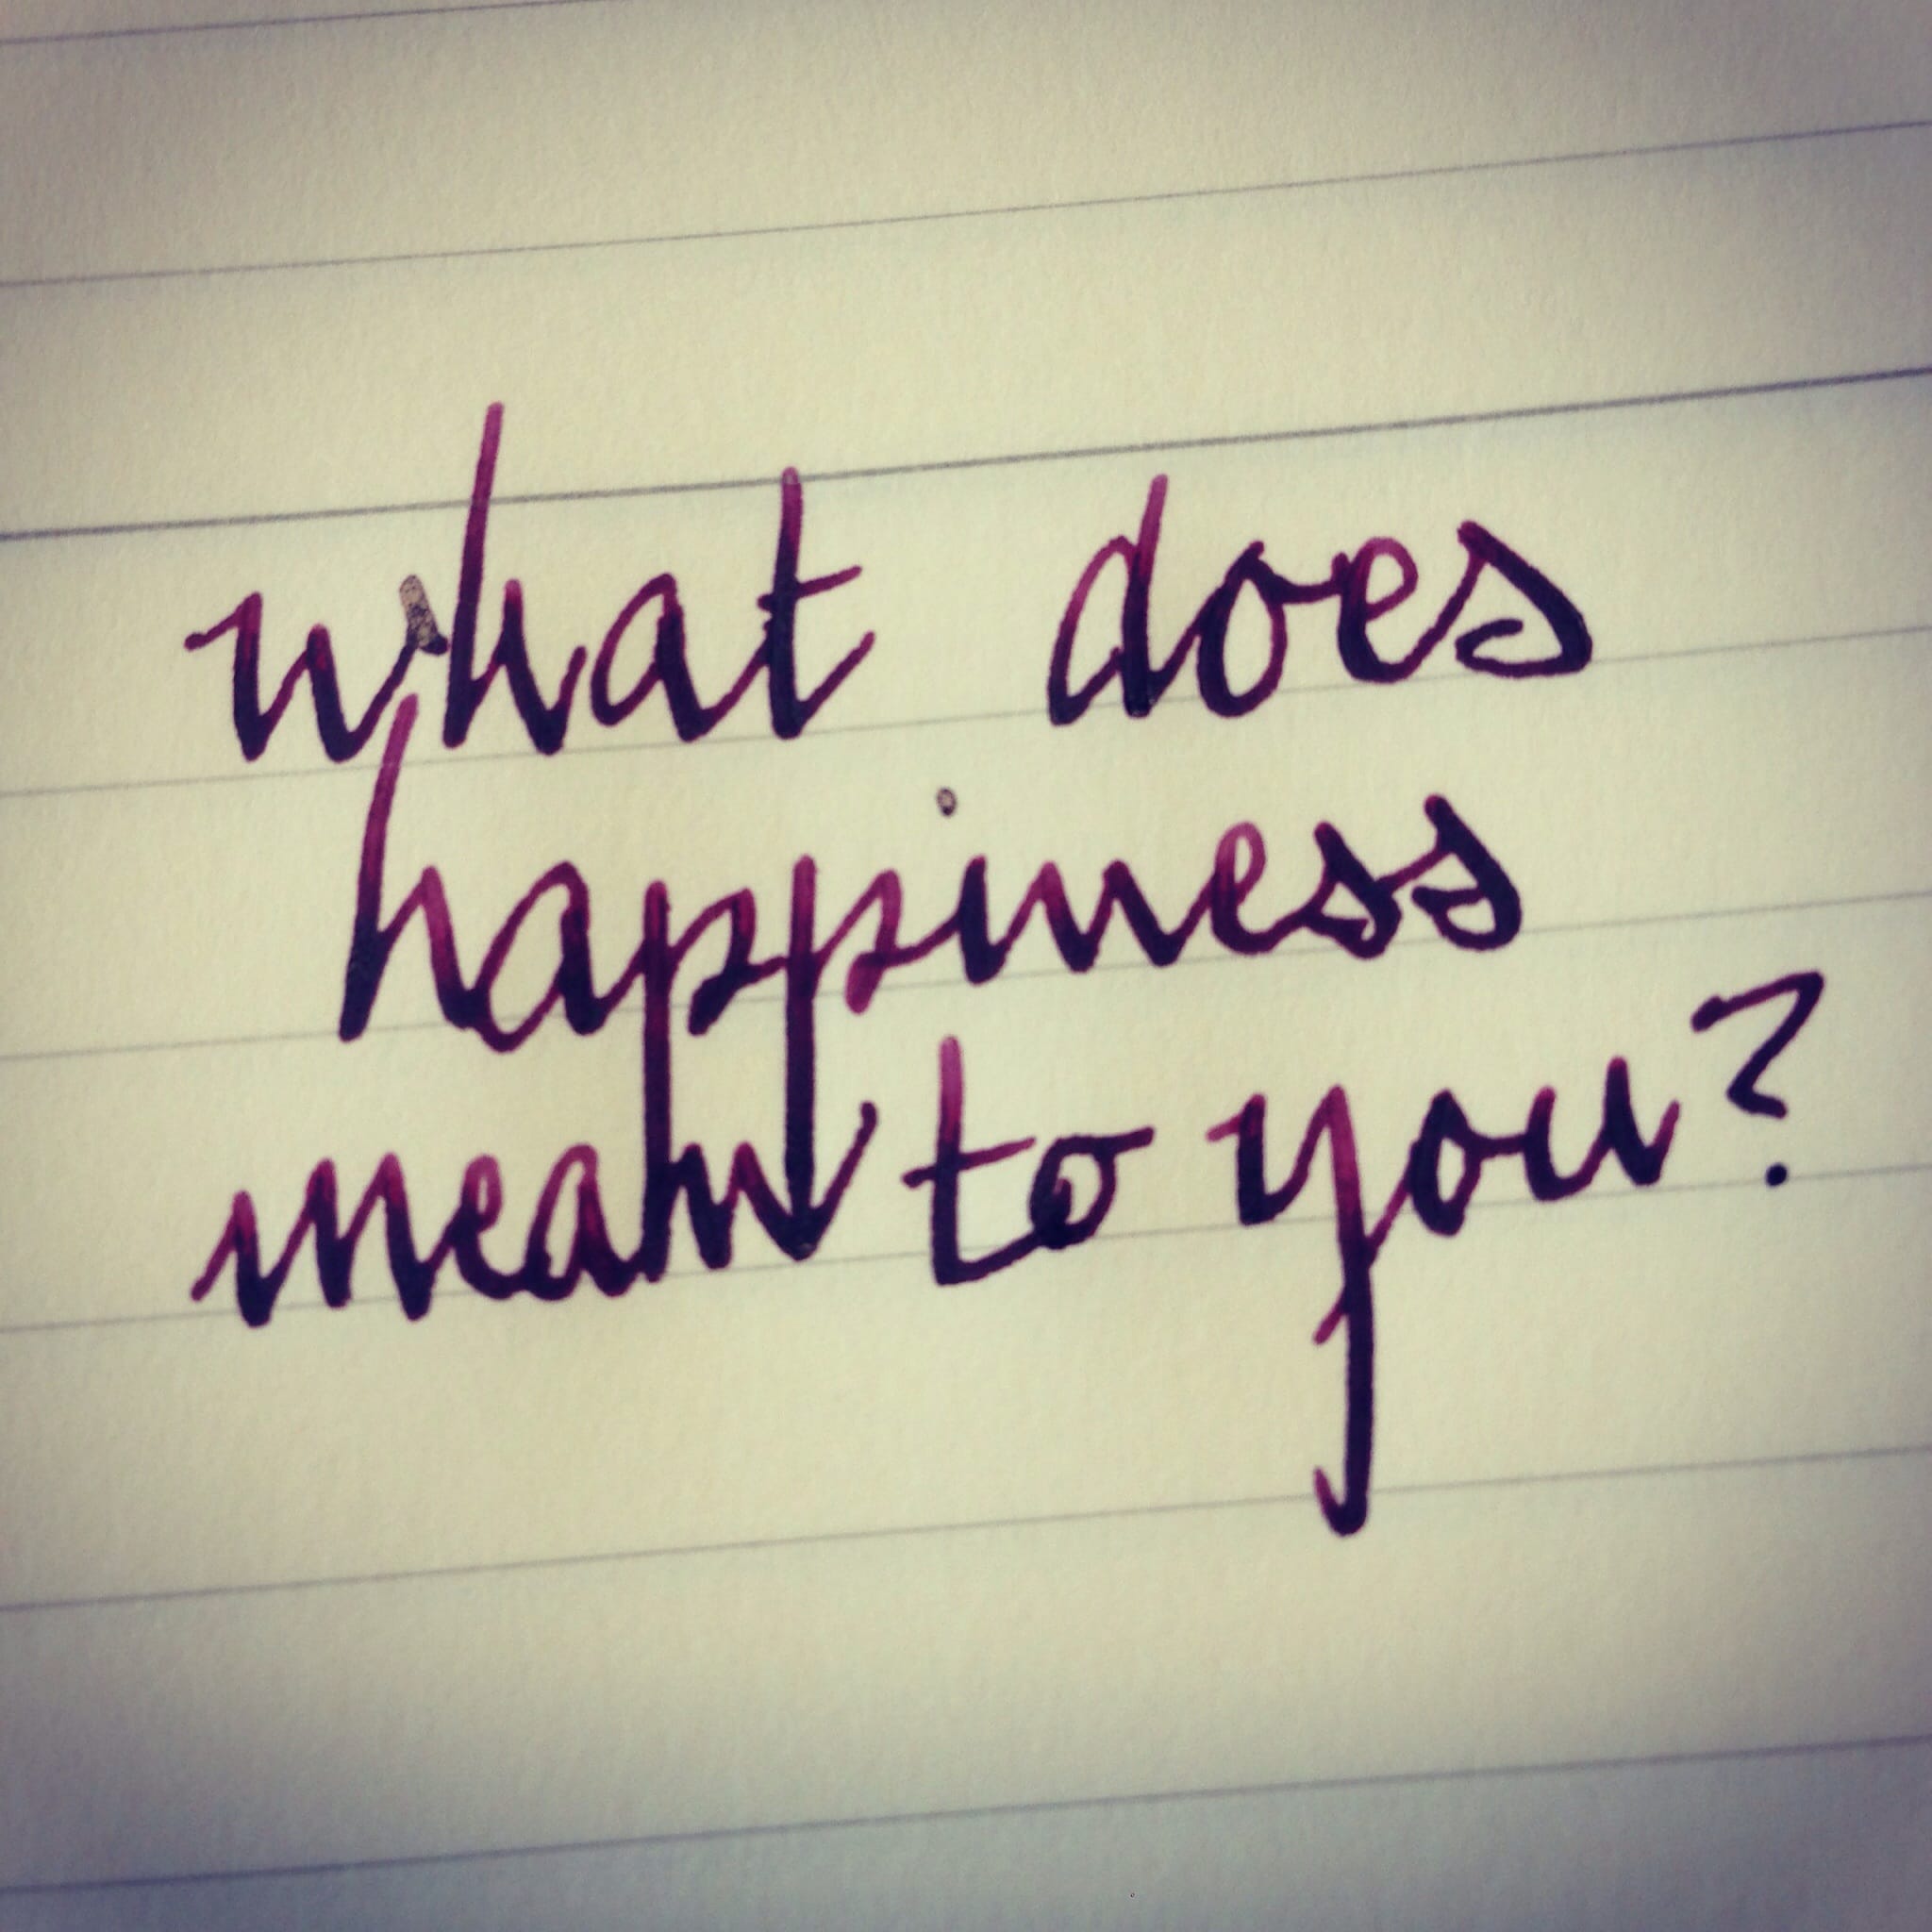 what does
happiness
mean to you?